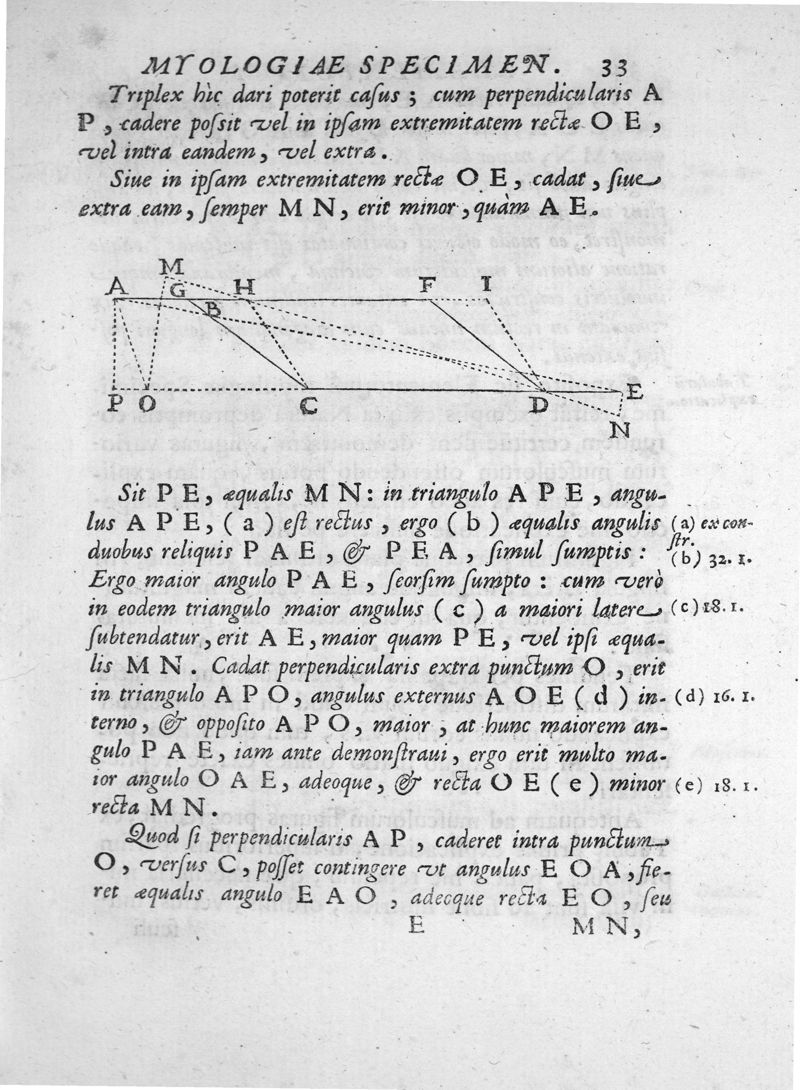 MYOLOGIAE SPECIMEN. 33
Triplex hic dari poterit caſus ; cum perpendicularis A
P , cadere poſsit vel in ipſam extremitatem rectæ O E ,
vel intra eandem , vel extra .
Siue in ipſam extremitatem rectæ O E , cadat , ſiue
extra eam , ſemper M N , erit minor , quàm A E .
M
A G H F I
B
P O C D E
N
Sit P E , æqualis M N : in triangulo A P E , angu-
lus A P E , ( a ) eſt rectus , ergo ( b ) æqualis angulis (a) ex con-
ſtr.
duobus reliquis P A E , & P E A , ſimul ſumptis : (b) 32. 1.
Ergo maior angulo P A E , ſeorſim ſumpto : cum verò
in eodem triangulo maior angulus ( c ) a maiori latere (c) 18. 1.
ſubtendatur , erit A E , maior quam P E , vel ipſi æqua-
lis M N . Cadat perpendicularis extra punctum O , erit
in triangulo A P O , angulus externus A O E ( d ) in- (d) 16. 1.
terno , & oppoſito A P O , maior , at hunc maiorem an-
gulo P A E , iam ante demonſtraui , ergo erit multo ma-
ior angulo O A E , adeoque , & recta O E ( e ) minor (e) 18. 1.
recta M N .
Quod ſi perpendicularis A P , caderet intra punctum
O , verſus C , poſſet contingere vt angulus E O A , fie-
ret æqualis angulo E A O , adecque recta E O , ſeu
E M N ,